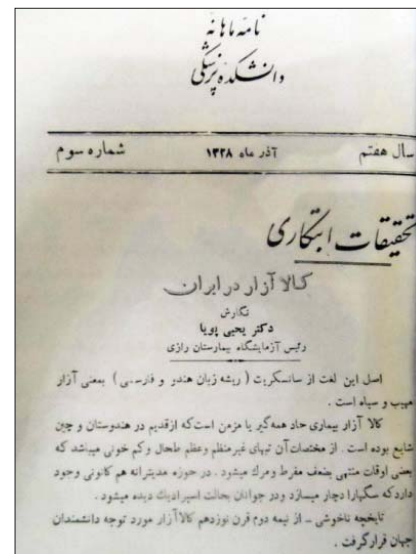 نامه ماهانه
دانشکده پزشکی
سال هفتم آذر ماه ۱۳۲۸ شماره سوم
تحقیقات ابتکاری
کالا آزار در ایران
نگارش
دکتر یحیی پویا
رئیس آزمایشگاه بیمارستان رازی
اصل این لغت از سانسکریت (ریشه زبان هندو و فارسی) بمعنی آزار
مهیب و سیاه است.
کالا آزار بیماری حاد همه‌گیر یا مزمن است که از قدیم در هندوستان و چین
شایع بوده است. از مختصات آن تبهای غیر منظم و عظم طحال و کم خونی میباشد که
بعضی اوقات منتهی بضعف مفرط و مرگ میشود. در حوزه مدیترانه هم کانونی وجود
دارد که سگها را دچار میسازد و در جوانان بحالت اسپرادیک دیده میشود.
تاریخچه ناخوشی - از نیمه دوم قرن نوزدهم کالا آزار مورد توجه دانشمندان
جهان قرار گرفت.